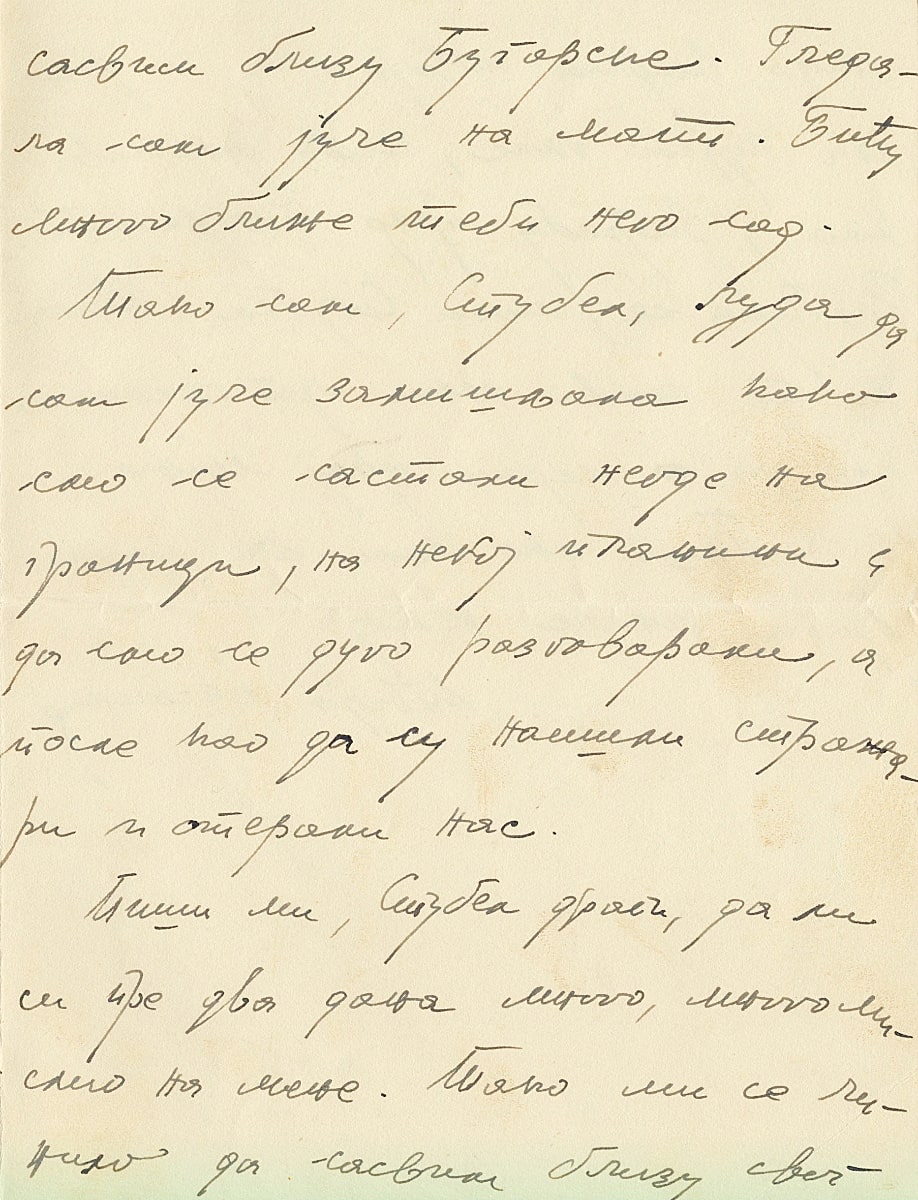 сасвим близу Бугарске. Гледа-
ла сам јуче на мапи. Бићу
много ближе теби него сад.
Тако сам, Стубел, луда да
сам јуче замишљала како
смо се састали негде на
граници, на некој планини и
да смо се дуго разговарали, а
после као да су наишли стража-
ри и отерали нас.
Пиши ми, Стубел драги, да ли
си пре два дана много, много ми-
слио на мене. Тако ми се чи-
нило да сасвим близу свог